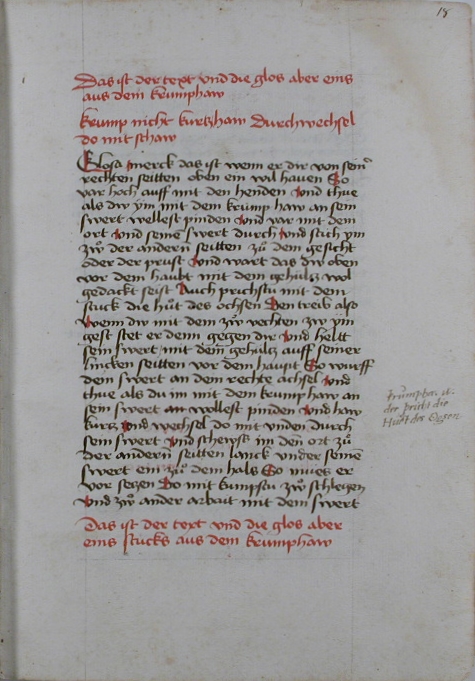 18
Das ist der text vnd die glos aber eins
aus dem krumphaw
Krump nicht kurtzhaw Durchwechsel
do mit schaw
Glosa merck das ist wenn er dir von seiner
rechten seitten oben ein wil hawen So
var hoch auff mit den henden vnd thue
als dw ym mit dem krump haw an sein
swert wellest pinden vnd var mit dem
ort vnd seinē swert durch vnd stich ym
zw der andern seitten zu dem gesicht
oder der prust vnd wart das dw oben
vor dem haubt mit dem gehultz wol
gedackt seist Auch prichstu mit dem
stuck die hut des ochsen Den treib also
Wenn dw mit dem zw vechten zw ym
gest stet er denn gegen dir vnd heltt
sein swert mit dem gehultz auff seiner
lincken seitten vor dem haupt So wurff
dein swert an dein rechte achsel vnd
thue als du im mit dem krumphaw an
sein swert wollest pinden vnd haw
kurtz vnd wechsel do mit vnden durch
sein swert vnd scheuss im den ort zu
der andern seitten lanck vnder seinē
swert ein zu dem hals So mues er
vor setzen Do mit kumpstu zw schlegen
vnd zw ander arbait mit dem swert
Das ist der text vnd die glos aber
eins stucks aus dem krumphaw
der pricht die
Huet des Ogsen